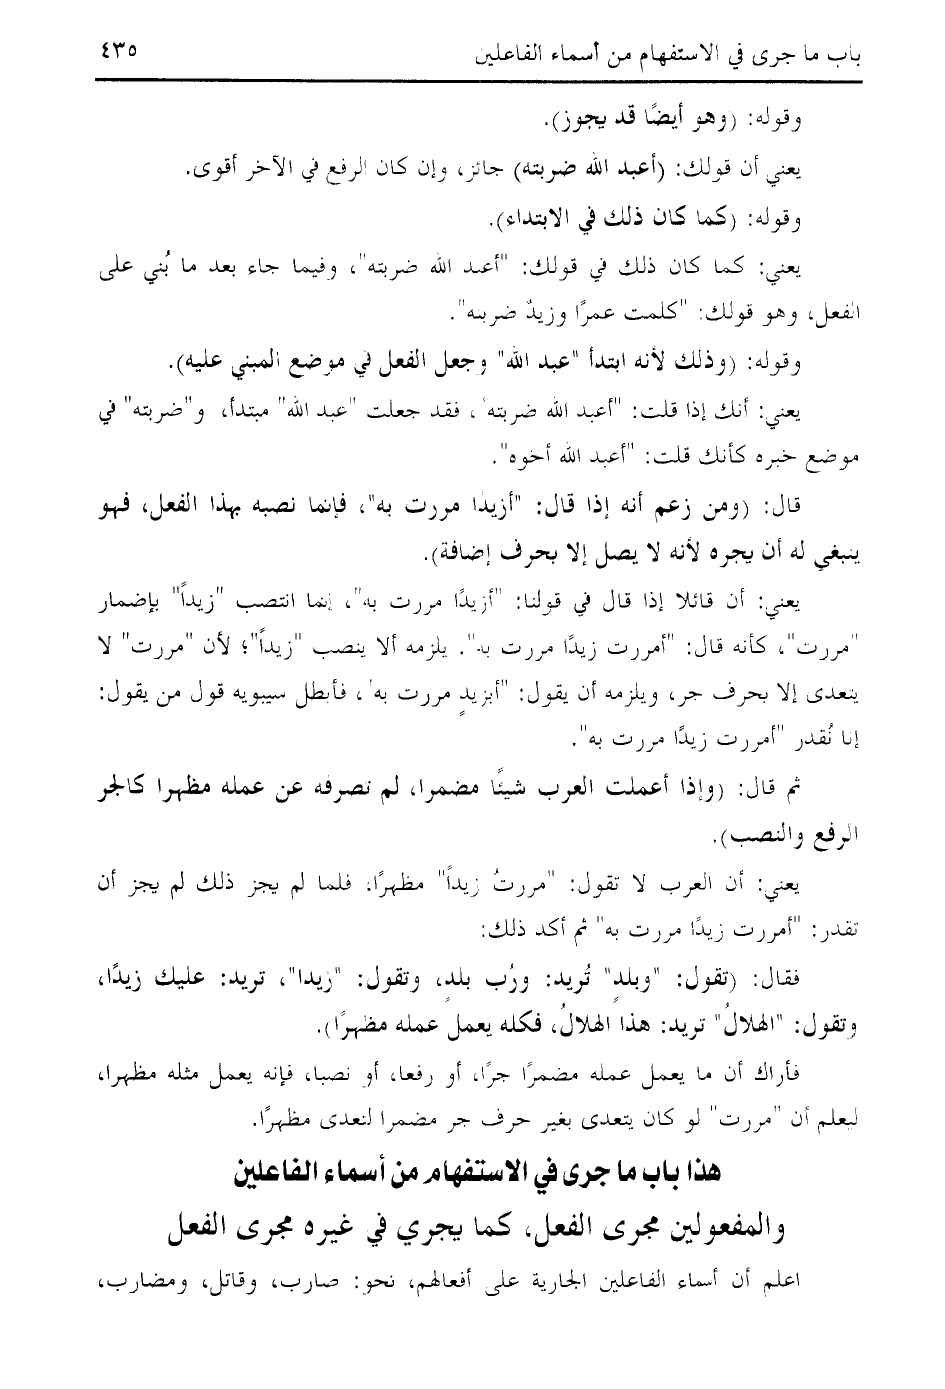 باب ما جرى في الاستفهام من أسماء الفاعلين ٤٣٥
وقوله: (وهو أيضًا قد يجوز).
يعني أن قولك: (أعبد الله ضربته) جائز، وإن كان الرفع في الآخر أقوى.
وقوله: (كما كان ذلك في الابتداء).
يعني: كما كان ذلك في قولك: "أعبد الله ضربته"، وفيما جاء بعد ما بُني على
الفعل، وهو قولك: "كلمت عمرًا وزيدٌ ضربته".
وقوله: (وذلك لأنه ابتدأ "عبد الله" وجعل الفعل في موضع المبني عليه).
يعني: أنك إذا قلت: "أعبد الله ضربته"، فقد جعلت "عبد الله" مبتدأ، و"ضربته" في
موضع خبره كأنك قلت: "أعبد الله أخوه".
قال: (ومن زعم أنه إذا قال: "أزيدًا مررت به"، فإنما نصبه بهذا الفعل، فهو
ينبغي له أن يجره لأنه لا يصل إلا بحرف إضافة).
يعني: أن قائلا إذا قال في قولنا: "أزيدًا مررت به"، إنما انتصب "زيداً" بإضمار
"مررت"، كأنه قال: "أمررت زيدًا مررت به". يلزمه ألا ينصب "زيداً"؛ لأن "مررت" لا
يتعدى إلا بحرف جر، ويلزمه أن يقول: "أبزيدٍ مررت به"، فأبطل سيبويه قول من يقول:
إنا نُقدر "أمررت زيدًا مررت به".
ثم قال: (وإذا أعملت العرب شيئًا مضمرا، لم تصرفه عن عمله مظهرا كالجر
الرفع والنصب).
يعني: أن العرب لا تقول: "مررتُ زيداً" مظهرًا، فلما لم يجز ذلك لم يجز أن
تقدر: "أمررت زيدًا مررت به" ثم أكد ذلك:
فقال: (تقول: "وبلدٍ" تُريد: ورُب بلدٍ، وتقول: "زيدا"، تريد: عليك زيدًا،
وتقول: "الهلالُ" تريد: هذا الهلالُ، فكله يعمل عمله مظهرًا).
فأراك أن ما يعمل عمله مضمرًا جرًا، أو رفعا، أو نصبا، فإنه يعمل مثله مظهرا،
ليعلم أن "مررت" لو كان يتعدى بغير حرف جر مضمرا لتعدى مظهرًا.
هذا باب ما جرى في الاستفهام من أسماء الفاعلين
والمفعولين مجرى الفعل، كما يجري في غيره مجرى الفعل
اعلم أن أسماء الفاعلين الجارية على أفعالهم، نحو: ضارب، وقاتل، ومضارب،